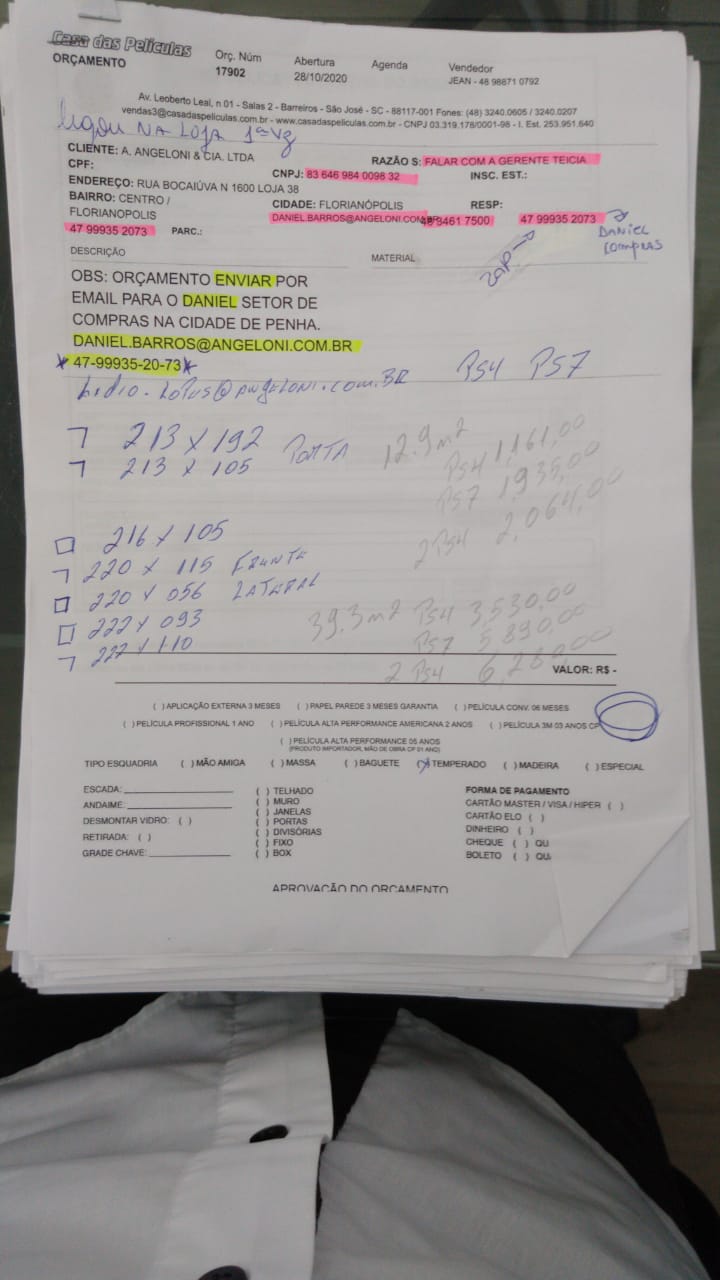 Casa das Películas
ORÇAMENTO
Orç. Núm
17902
Abertura
28/10/2020
Agenda
Vendedor
JEAN - 48 98871 0792
Av. Leoberto Leal, n 01 - Salas 2 - Barreiros - São José - SC - 88117-001 Fones: (48) 3240.0605 / 3240.0207
vendas3@casadaspeliculas.com.br - www.casadaspeliculas.com.br - CNPJ 03.319.178/0001-98 - I. Est. 253.951.640
Ligou NA LOJA 1ª Vz
CLIENTE: A. ANGELONI & CIA. LTDA
RAZÃO S: FALAR COM A GERENTE TEICIA
CPF:
CNPJ: 83 646 984 0098 32
INSC. EST.:
ENDEREÇO: RUA BOCAIÚVA N 1600 LOJA 38
BAIRRO: CENTRO /
CIDADE: FLORIANÓPOLIS
RESP:
FLORIANOPOLIS
DANIEL.BARROS@ANGELONI.COM.BR
48 3461 7500
47 99935 2073
DANIEL
COMPRAS
47 99935 2073
PARC.:
ZAP
DESCRIÇÃO
MATERIAL
OBS: ORÇAMENTO ENVIAR POR
EMAIL PARA O DANIEL SETOR DE
COMPRAS NA CIDADE DE PENHA.
DANIEL.BARROS@ANGELONI.COM.BR
* 47-99935-20-73 *
@ANGELONI.COM.BR
PS4 PS7
213 X 192 PORTA
213 X 105
12.9 m²
PS4 1,161,00
PS7 1,935,00
2 PS4 2,064,00
216 X 105
220 X 115 FRENTE
220 X 056 LATERAL
222 X 093
222 X 110
39.3 m² PS4 3,530,00
PS7 5,890,00
2 PS4 6,280,00
VALOR: R$ -
( ) APLICAÇÃO EXTERNA 3 MESES ( ) PAPEL PAREDE 3 MESES GARANTIA ( ) PELÍCULA CONV. 06 MESES
( ) PELÍCULA PROFISSIONAL 1 ANO ( ) PELÍCULA ALTA PERFORMANCE AMERICANA 2 ANOS ( ) PELÍCULA 3M 03 ANOS CP
( ) PELÍCULA ALTA PERFORMANCE 05 ANOS
(PRODUTO IMPORTADOR, MÃO DE OBRA CP 01 ANO)
TIPO ESQUADRIA ( ) MÃO AMIGA ( ) MASSA ( ) BAGUETE (X) TEMPERADO ( ) MADEIRA ( ) ESPECIAL
ESCADA:
ANDAIME:
DESMONTAR VIDRO: ( )
RETIRADA: ( )
GRADE CHAVE:
( ) TELHADO
( ) MURO
( ) JANELAS
( ) PORTAS
( ) DIVISÓRIAS
( ) FIXO
( ) BOX
FORMA DE PAGAMENTO
CARTÃO MASTER / VISA / HIPER ( )
CARTÃO ELO ( )
DINHEIRO ( )
CHEQUE ( ) QU
BOLETO ( ) QU
APROVAÇÃO DO ORÇAMENTO